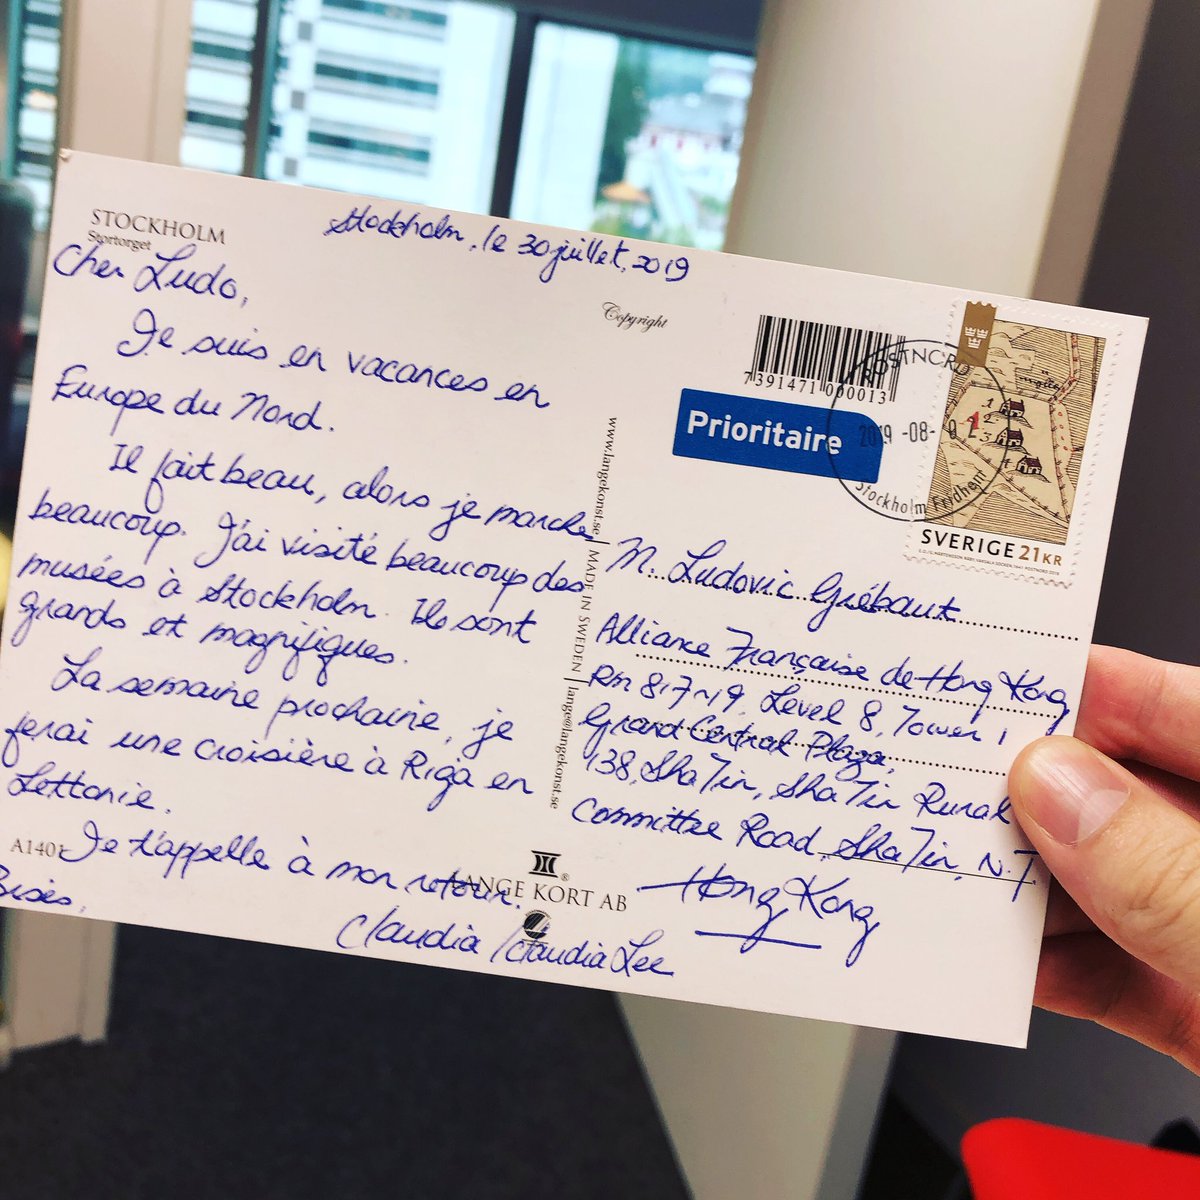 STOCKHOLM
Stortorget
Stockholm, le 30 juillet, 2019
Cher Ludo,
Je suis en vacances en
Europe du Nord.
Il fait beau, alors je marche
beaucoup. J'ai visité beaucoup des
musées à Stockholm. Ils sont
grands et magnifiques.
La semaine prochaine, je
ferai une croisière à Riga en
Lettonie.
Je t'appelle à mon retour.
Bises,
Claudia / Claudia Lee
A1401
Copyright
www.langekonst.se | MADE IN SWEDEN | lange@langekonst.se
LANGE KORT AB
®
7391471 000013
Prioritaire
POSTNORD
2019-08-02
Stockholm Fridhem
SVERIGE 21 KR
M. Ludovic Grébaut
Alliance Française de Hong Kong
Rm 817~19, Level 8, Tower 1
Grand Central Plaza,
138, Sha Tin, Sha Tin Rural
Committee Road, Sha Tin, N.T.
Hong Kong